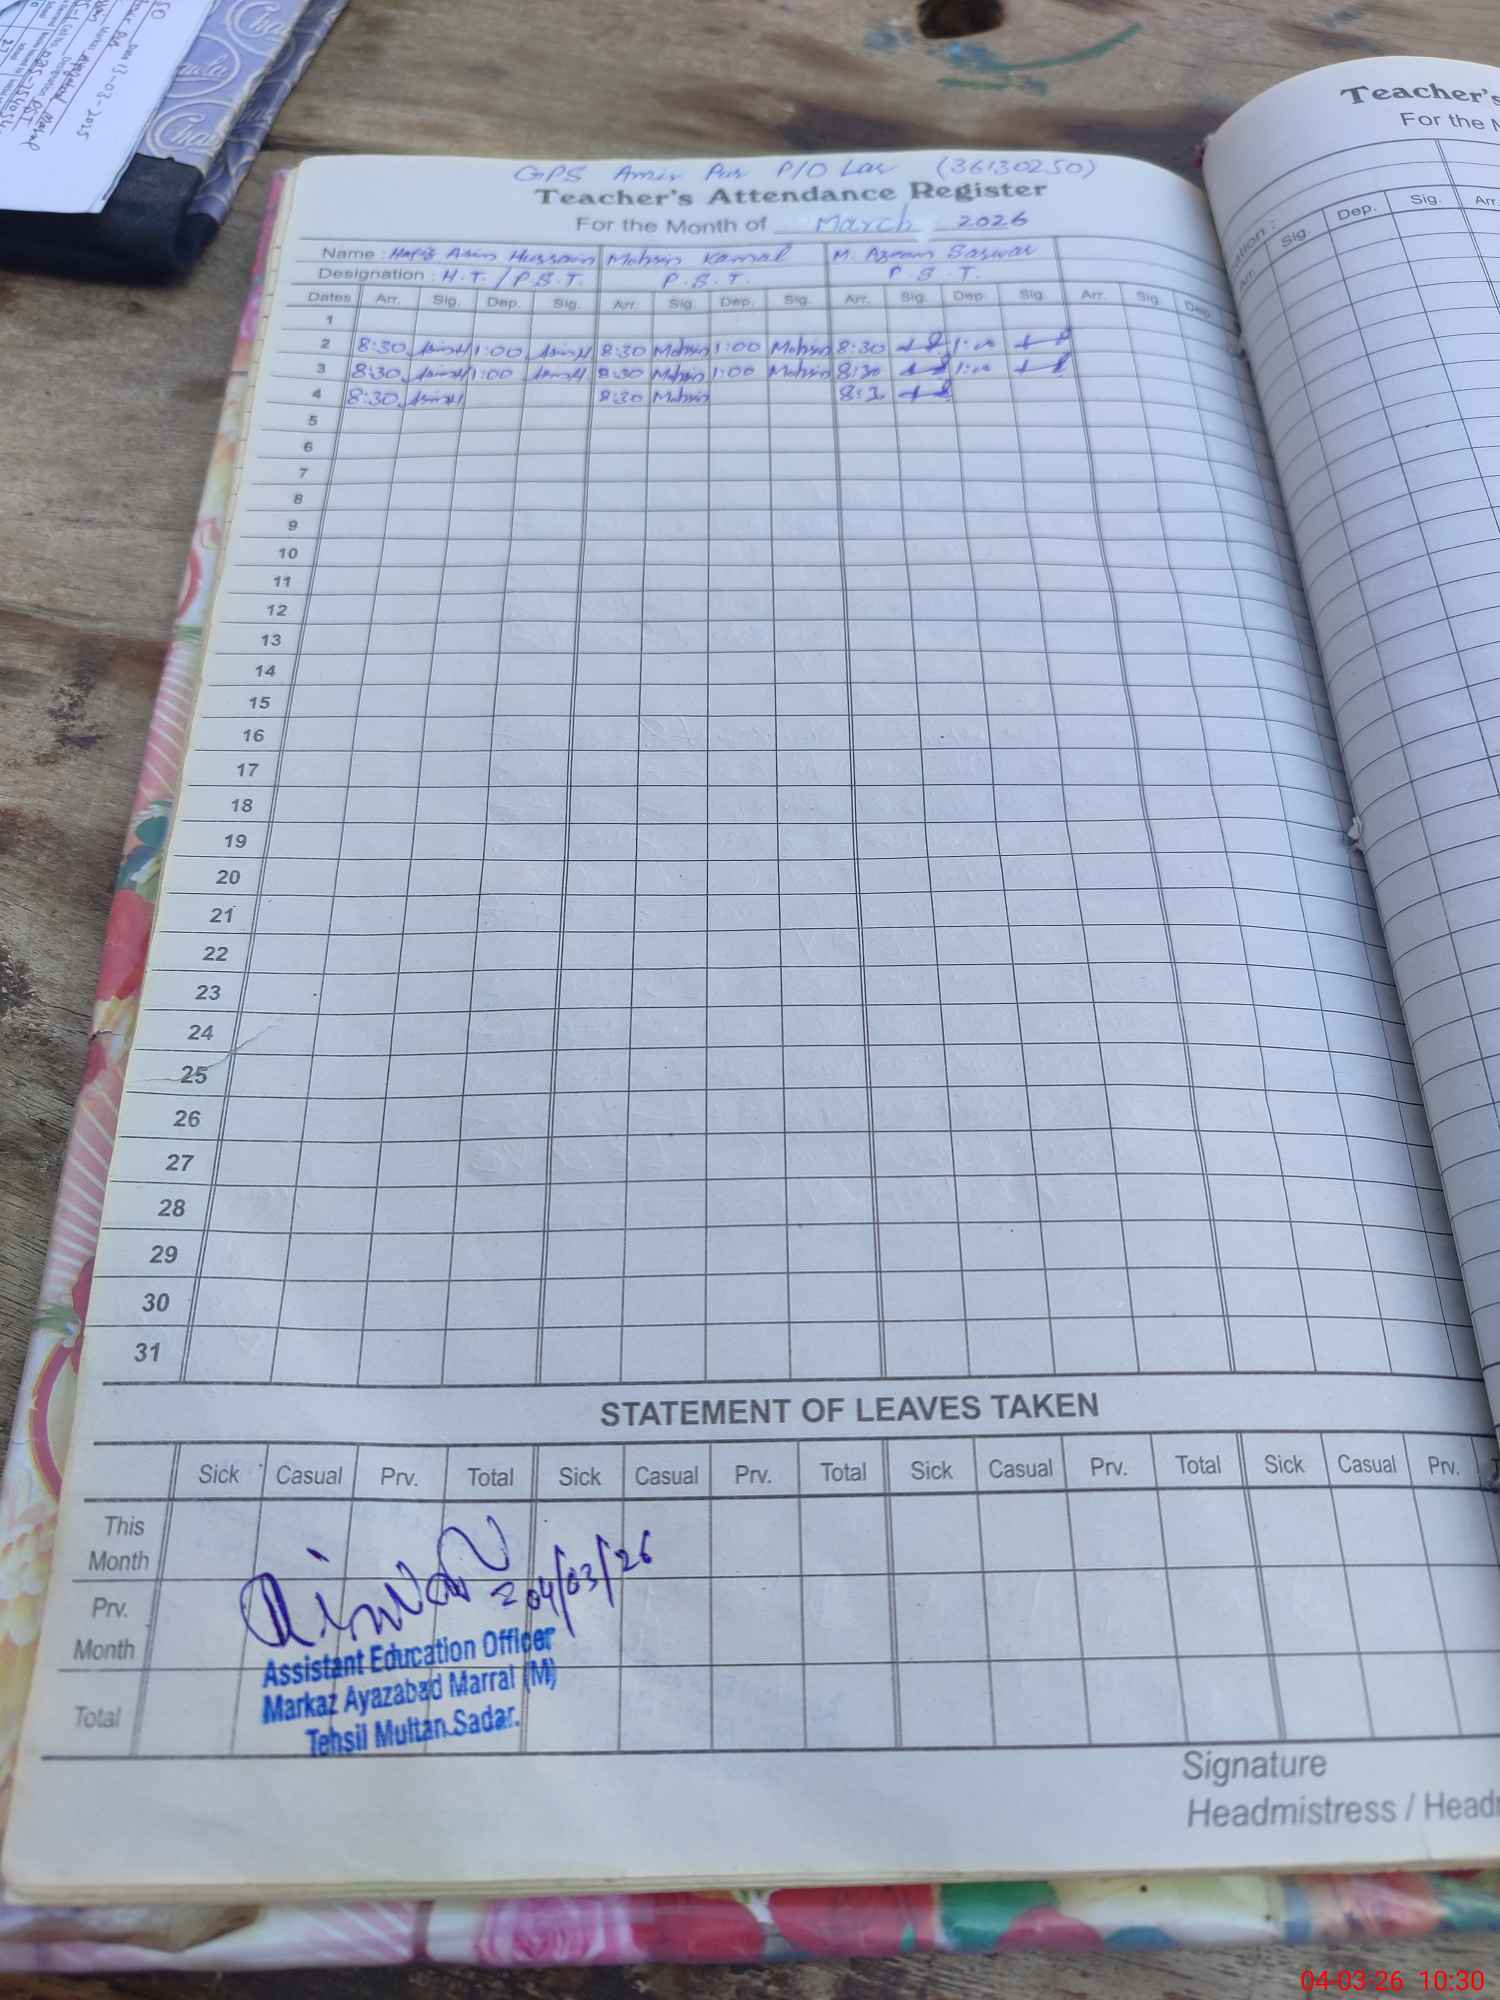 GPS Amir Pur P/O Lar (36130250)
Teacher's Attendance Register
For the Month of March 2026
Name : Hafiz Asim Hussain Mohsin Kamal M. Azeem Sarwar
Designation : H.T. / P.S.T. P.S.T. P.S.T.
Dates Arr. Sig. Dep. Sig. Arr. Sig. Dep. Sig. Arr. Sig. Dep. Sig. Arr. Sig. Dep.
1
2 8:30 AsimH 1:00 AsimH 8:30 Mohsin 1:00 Mohsin 8:30 1:00
3 8:30 AsimH 1:00 AsimH 8:30 Mohsin 1:00 Mohsin 8:30 1:00
4 8:30 AsimH 8:30 Mohsin 8:3
5
6
7
8
9
10
11
12
13
14
15
16
17
18
19
20
21
22
23
24
25
26
27
28
29
30
31
STATEMENT OF LEAVES TAKEN
Sick Casual Prv. Total Sick Casual Prv. Total Sick Casual Prv. Total Sick Casual Prv.
This
Month
Prv.
Month
Total
04/03/26
Assistant Education Officer
Markaz Ayazabad Marral (M)
Tehsil Multan Sadar.
Signature
Headmistress / Head
Teacher's
For the
Dep. Sig. Arr.
Arr. Sig.
13-03-2025
04-03-26 10:30